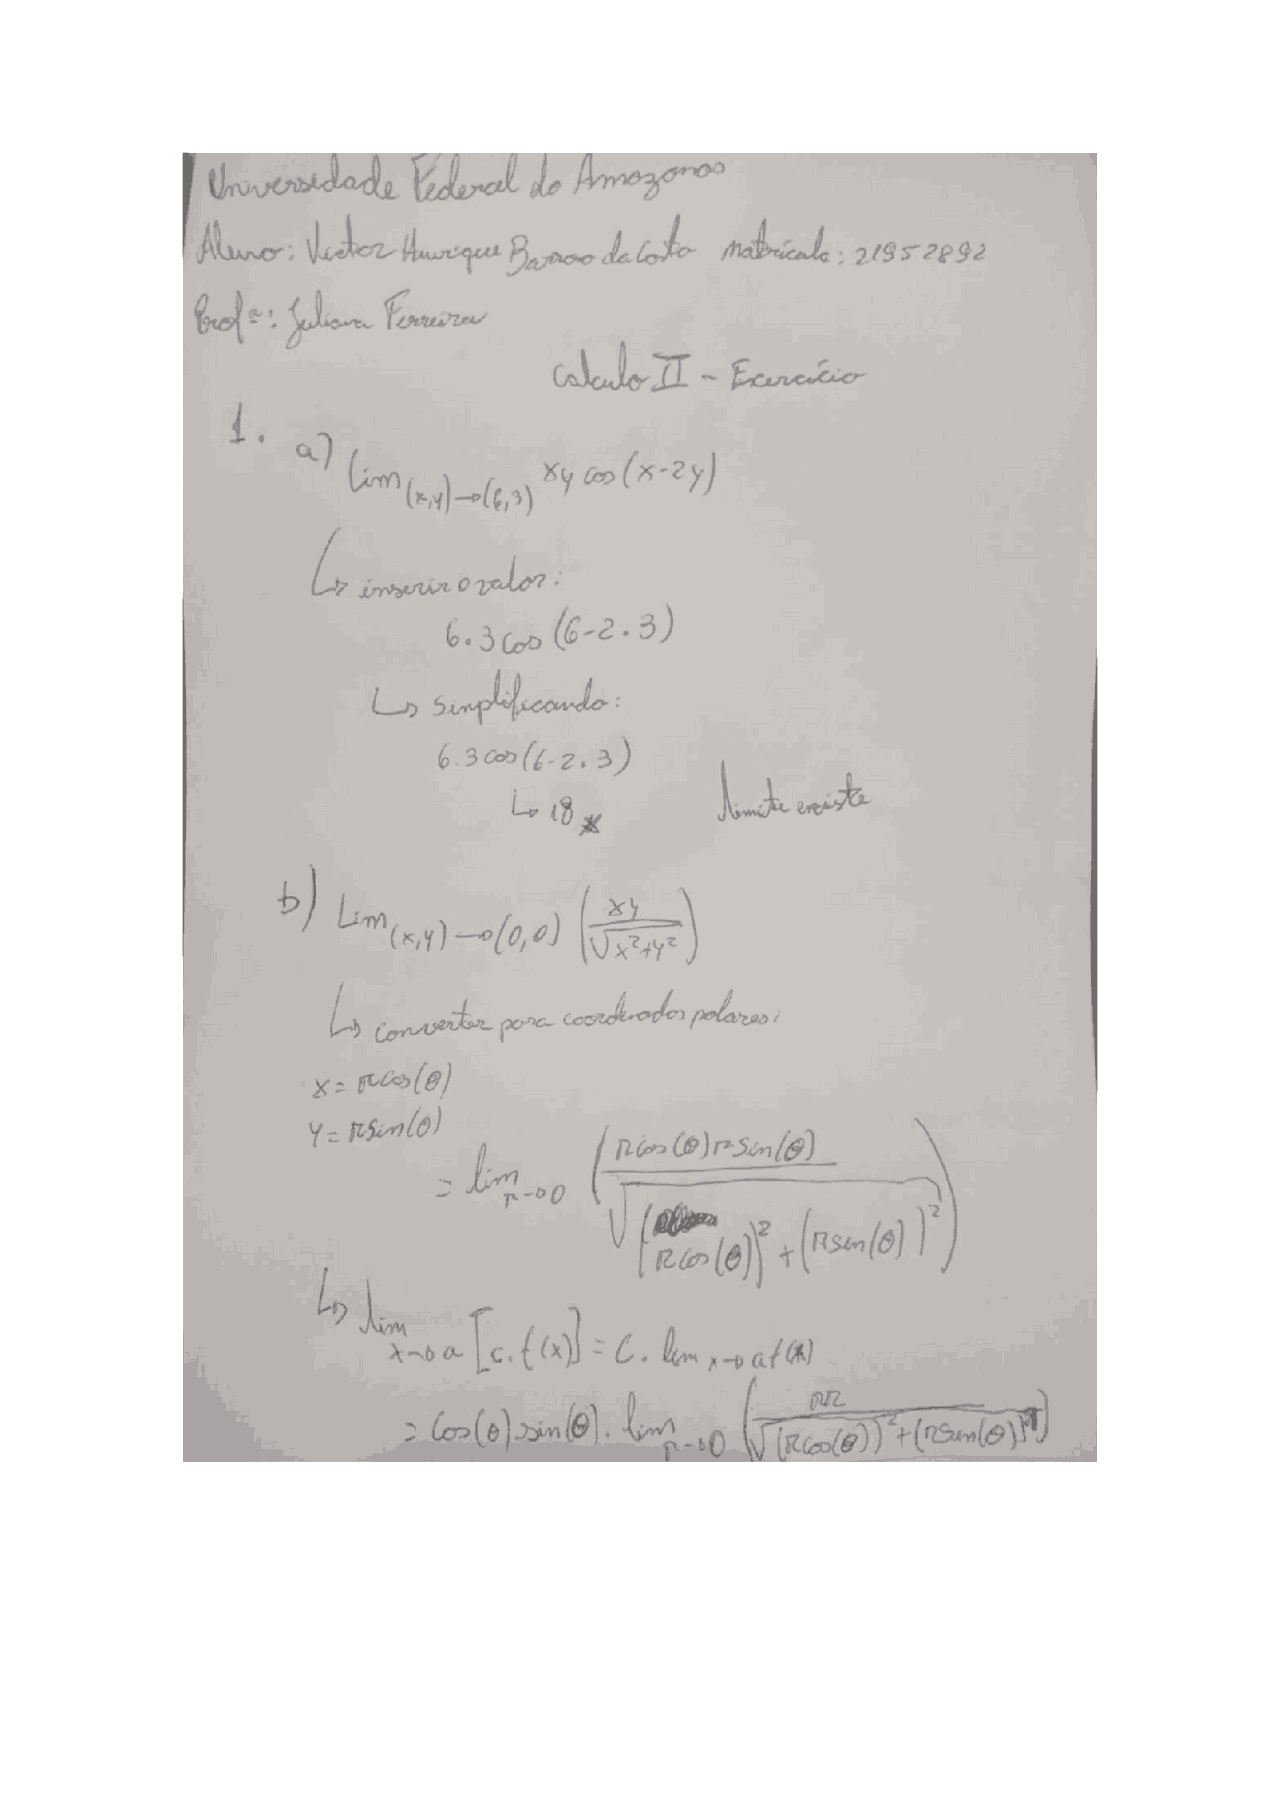 Universidade Federal do Amazonas
Aluno: Victor Henrique Barroso da Costa Matrícula: 21952892
Profª: Juliana Ferreira
Calculo II - Exercício
1. a) Lim (x,y)→(6,3) xy cos(x-2y)
↳ inserir o valor:
6.3 cos(6-2.3)
↳ simplificando:
6.3 cos(6-2.3)
↳ 18 limite existe
b) Lim (x,y)→(0,0) (xy/√x²+y²)
↳ converter para coordenadas polares:
x = rcos(θ)
y = rsin(θ)
= lim r→0 (rcos(θ)rsin(θ)/√(rcos(θ))²+(rsen(θ))²)
↳ lim x→a [c.f(x)] = C. lim x→a f(x)
= cos(θ)sin(θ). lim r→0 (rr/√(rcos(θ))²+(rsen(θ))²)